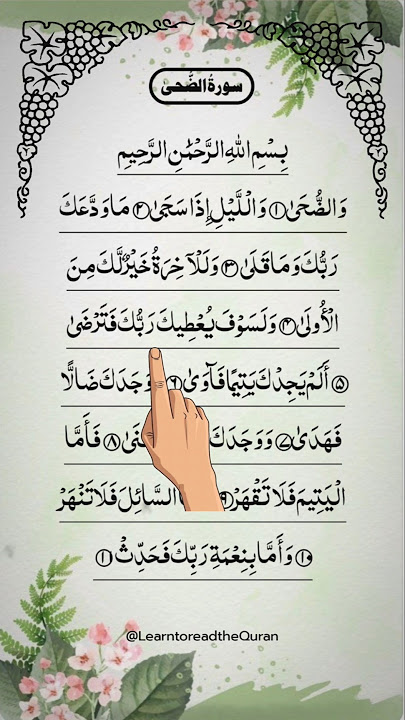 سورة الضحى
بِسْمِ اللَّهِ الرَّحْمَٰنِ الرَّحِيمِ
وَالضُّحَىٰ ١ وَاللَّيْلِ إِذَا سَجَىٰ ٢ مَا وَدَّعَكَ
رَبُّكَ وَمَا قَلَىٰ ٣ وَلَلْآخِرَةُ خَيْرٌ لَّكَ مِنَ
الْأُولَىٰ ٤ وَلَسَوْفَ يُعْطِيكَ رَبُّكَ فَتَرْضَىٰ
٥ أَلَمْ يَجِدْكَ يَتِيمًا فَآوَىٰ ٦ وَجَدَكَ ضَالًّا
فَهَدَىٰ ٧ وَوَجَدَكَ ٨ فَأَمَّا
الْيَتِيمَ فَلَا تَقْهَرْ ٩ السَّائِلَ فَلَا تَنْهَرْ
١٠ وَأَمَّا بِنِعْمَةِ رَبِّكَ فَحَدِّثْ ١١
@LearntoreadtheQuran